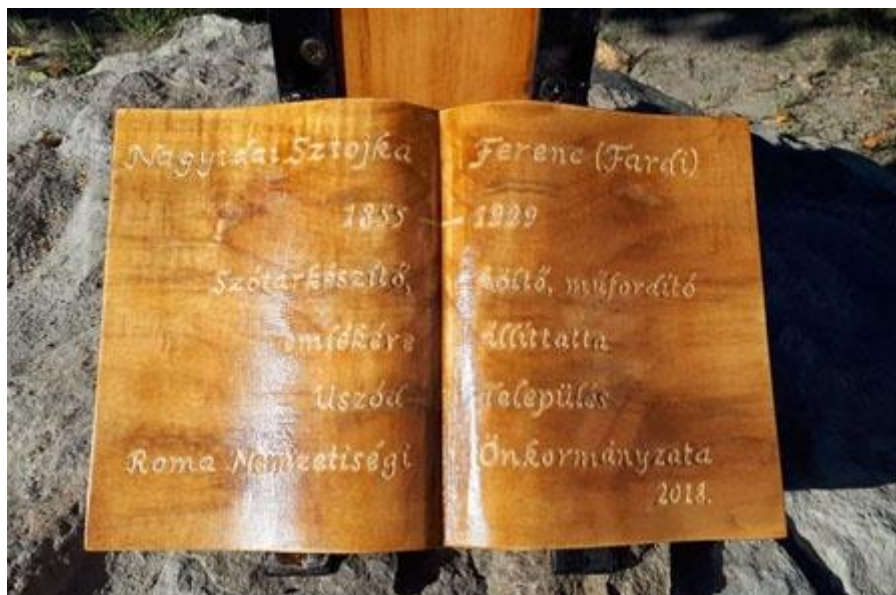 Nagyidai Sztojka Ferenc (Fardi)
1855 – 1929
Szótárkészítő, költő, műfordító
emlékére állíttatta
Uszód Település
Roma Nemzetiségi Önkormányzata
2018.